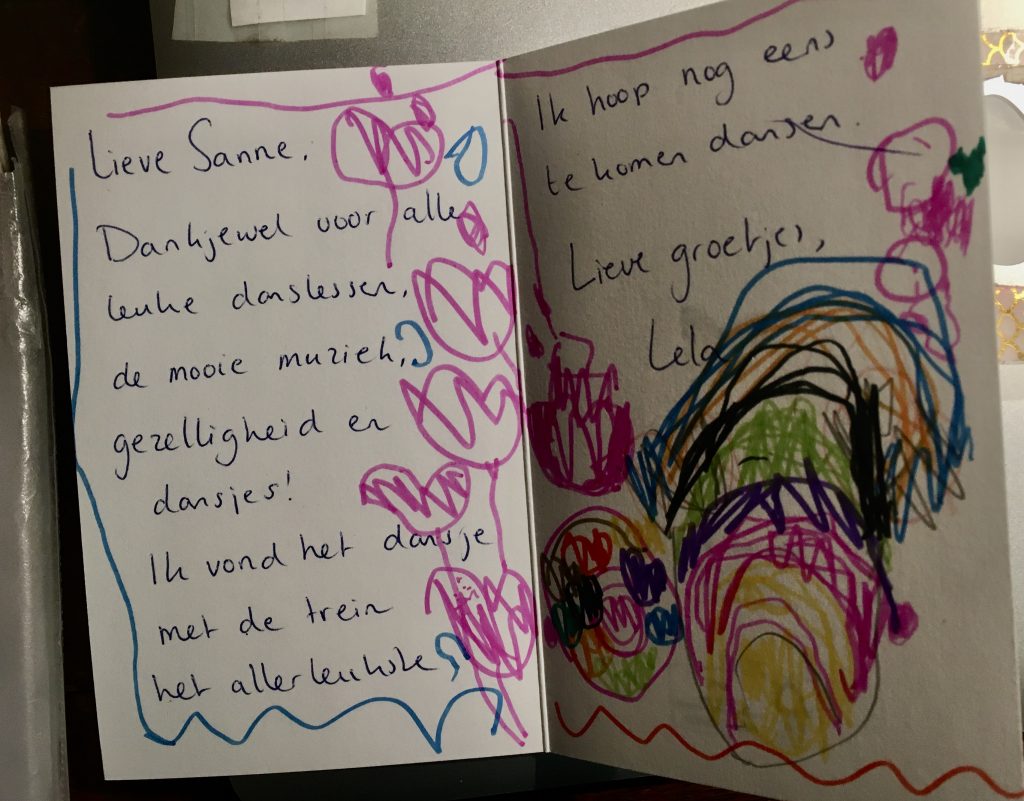 Lieve Sanne,
Dankjewel voor alle
leuke danslessen,
de mooie muziek,
gezelligheid en
dansjes!
Ik vond het dansje
met de trein
het allerleukste
Ik hoop nog eens
te komen dansen.
Lieve groetjes,
Lela